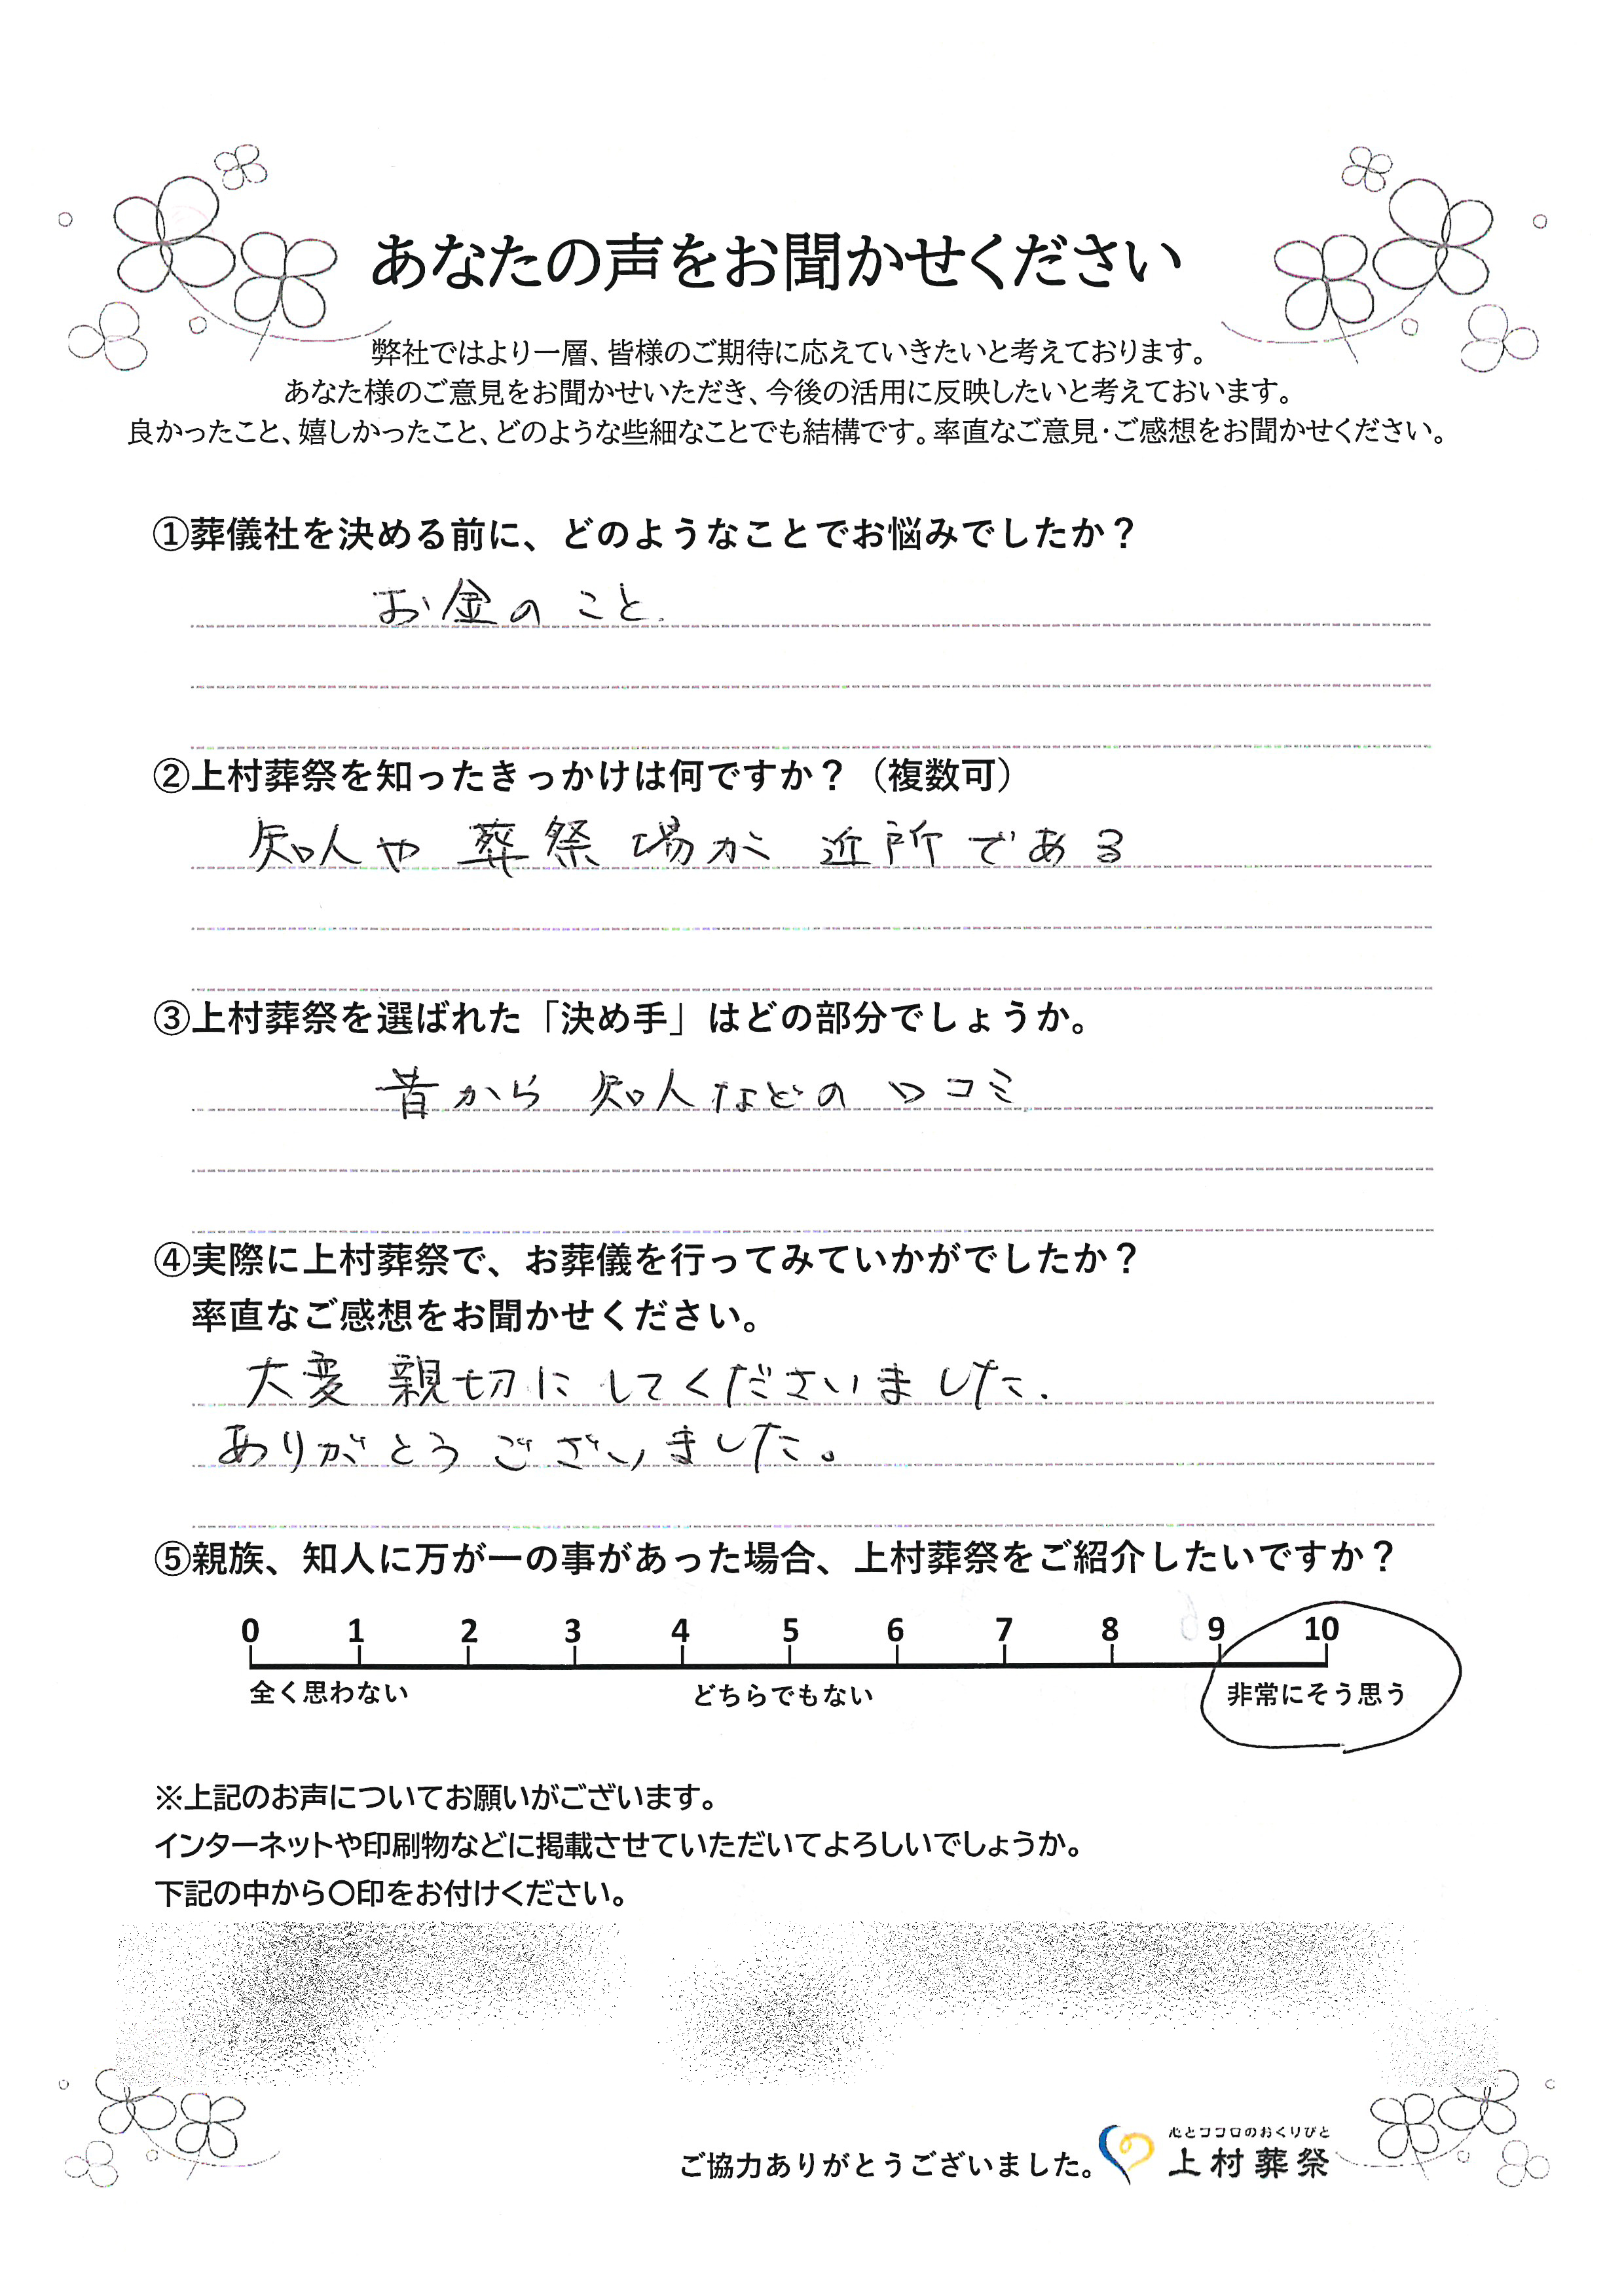 あなたの声をお聞かせください
弊社ではより一層、皆様のご期待に応えていきたいと考えております。
あなた様のご意見をお聞かせいただき、今後の活用に反映したいと考えておいます。
良かったこと、嬉しかったこと、どのような些細なことでも結構です。率直なご意見・ご感想をお聞かせください。
①葬儀社を決める前に、どのようなことでお悩みでしたか？
お金のこと.
②上村葬祭を知ったきっかけは何ですか？（複数可）
知人や葬祭場が近所である
③上村葬祭を選ばれた「決め手」はどの部分でしょうか。
昔から知人などの口コミ
④実際に上村葬祭で、お葬儀を行ってみていかがでしたか？
率直なご感想をお聞かせください。
大変親切にしてくださいました.
ありがとうございました。
⑤親族、知人に万が一の事があった場合、上村葬祭をご紹介したいですか？
0 1 2 3 4 5 6 7 8 9 10
全く思わない どちらでもない 非常にそう思う
※上記のお声についてお願いがございます。
インターネットや印刷物などに掲載させていただいてよろしいでしょうか。
下記の中から〇印をお付けください。
心とココロのおくりびと
ご協力ありがとうございました。 上村葬祭